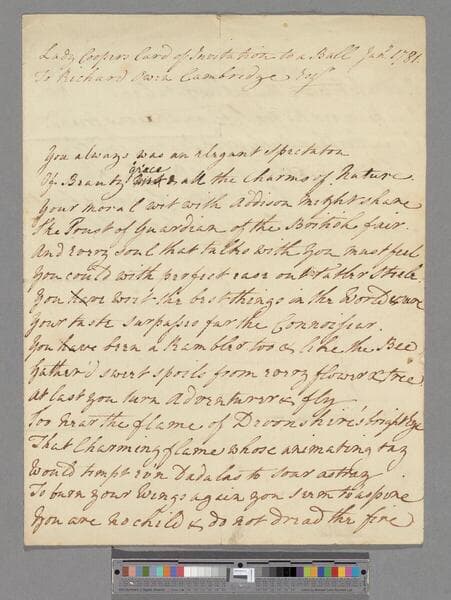 Lady Coopers Card of Invitation to a Ball Jan: 1781.
To Richard Owen Cambridge Esqr
You always was an elegant Spectator
Of Beauty grace & all the Charms of Nature
Your moral wit with Addison might share
The Trust of Guardian of the British fair.
And every soul that talks with you must feel
You could with perfect ease out Tatler Steele.
You have writ the best things in the World & sure
Your taste surpasses far the Connoiseur.
You have been a Rambler too & like the Bee
Gather'd sweet spoils from every flower & tree
at last you turn Adventurer & fly
Too near the flame of Devonshire's bright Eye
That Charming flame whose animating ray
Would tempt e'en Dadalas to soar astray
To burn your Wings again you seem to aspire
You are no child & do not dread the fire